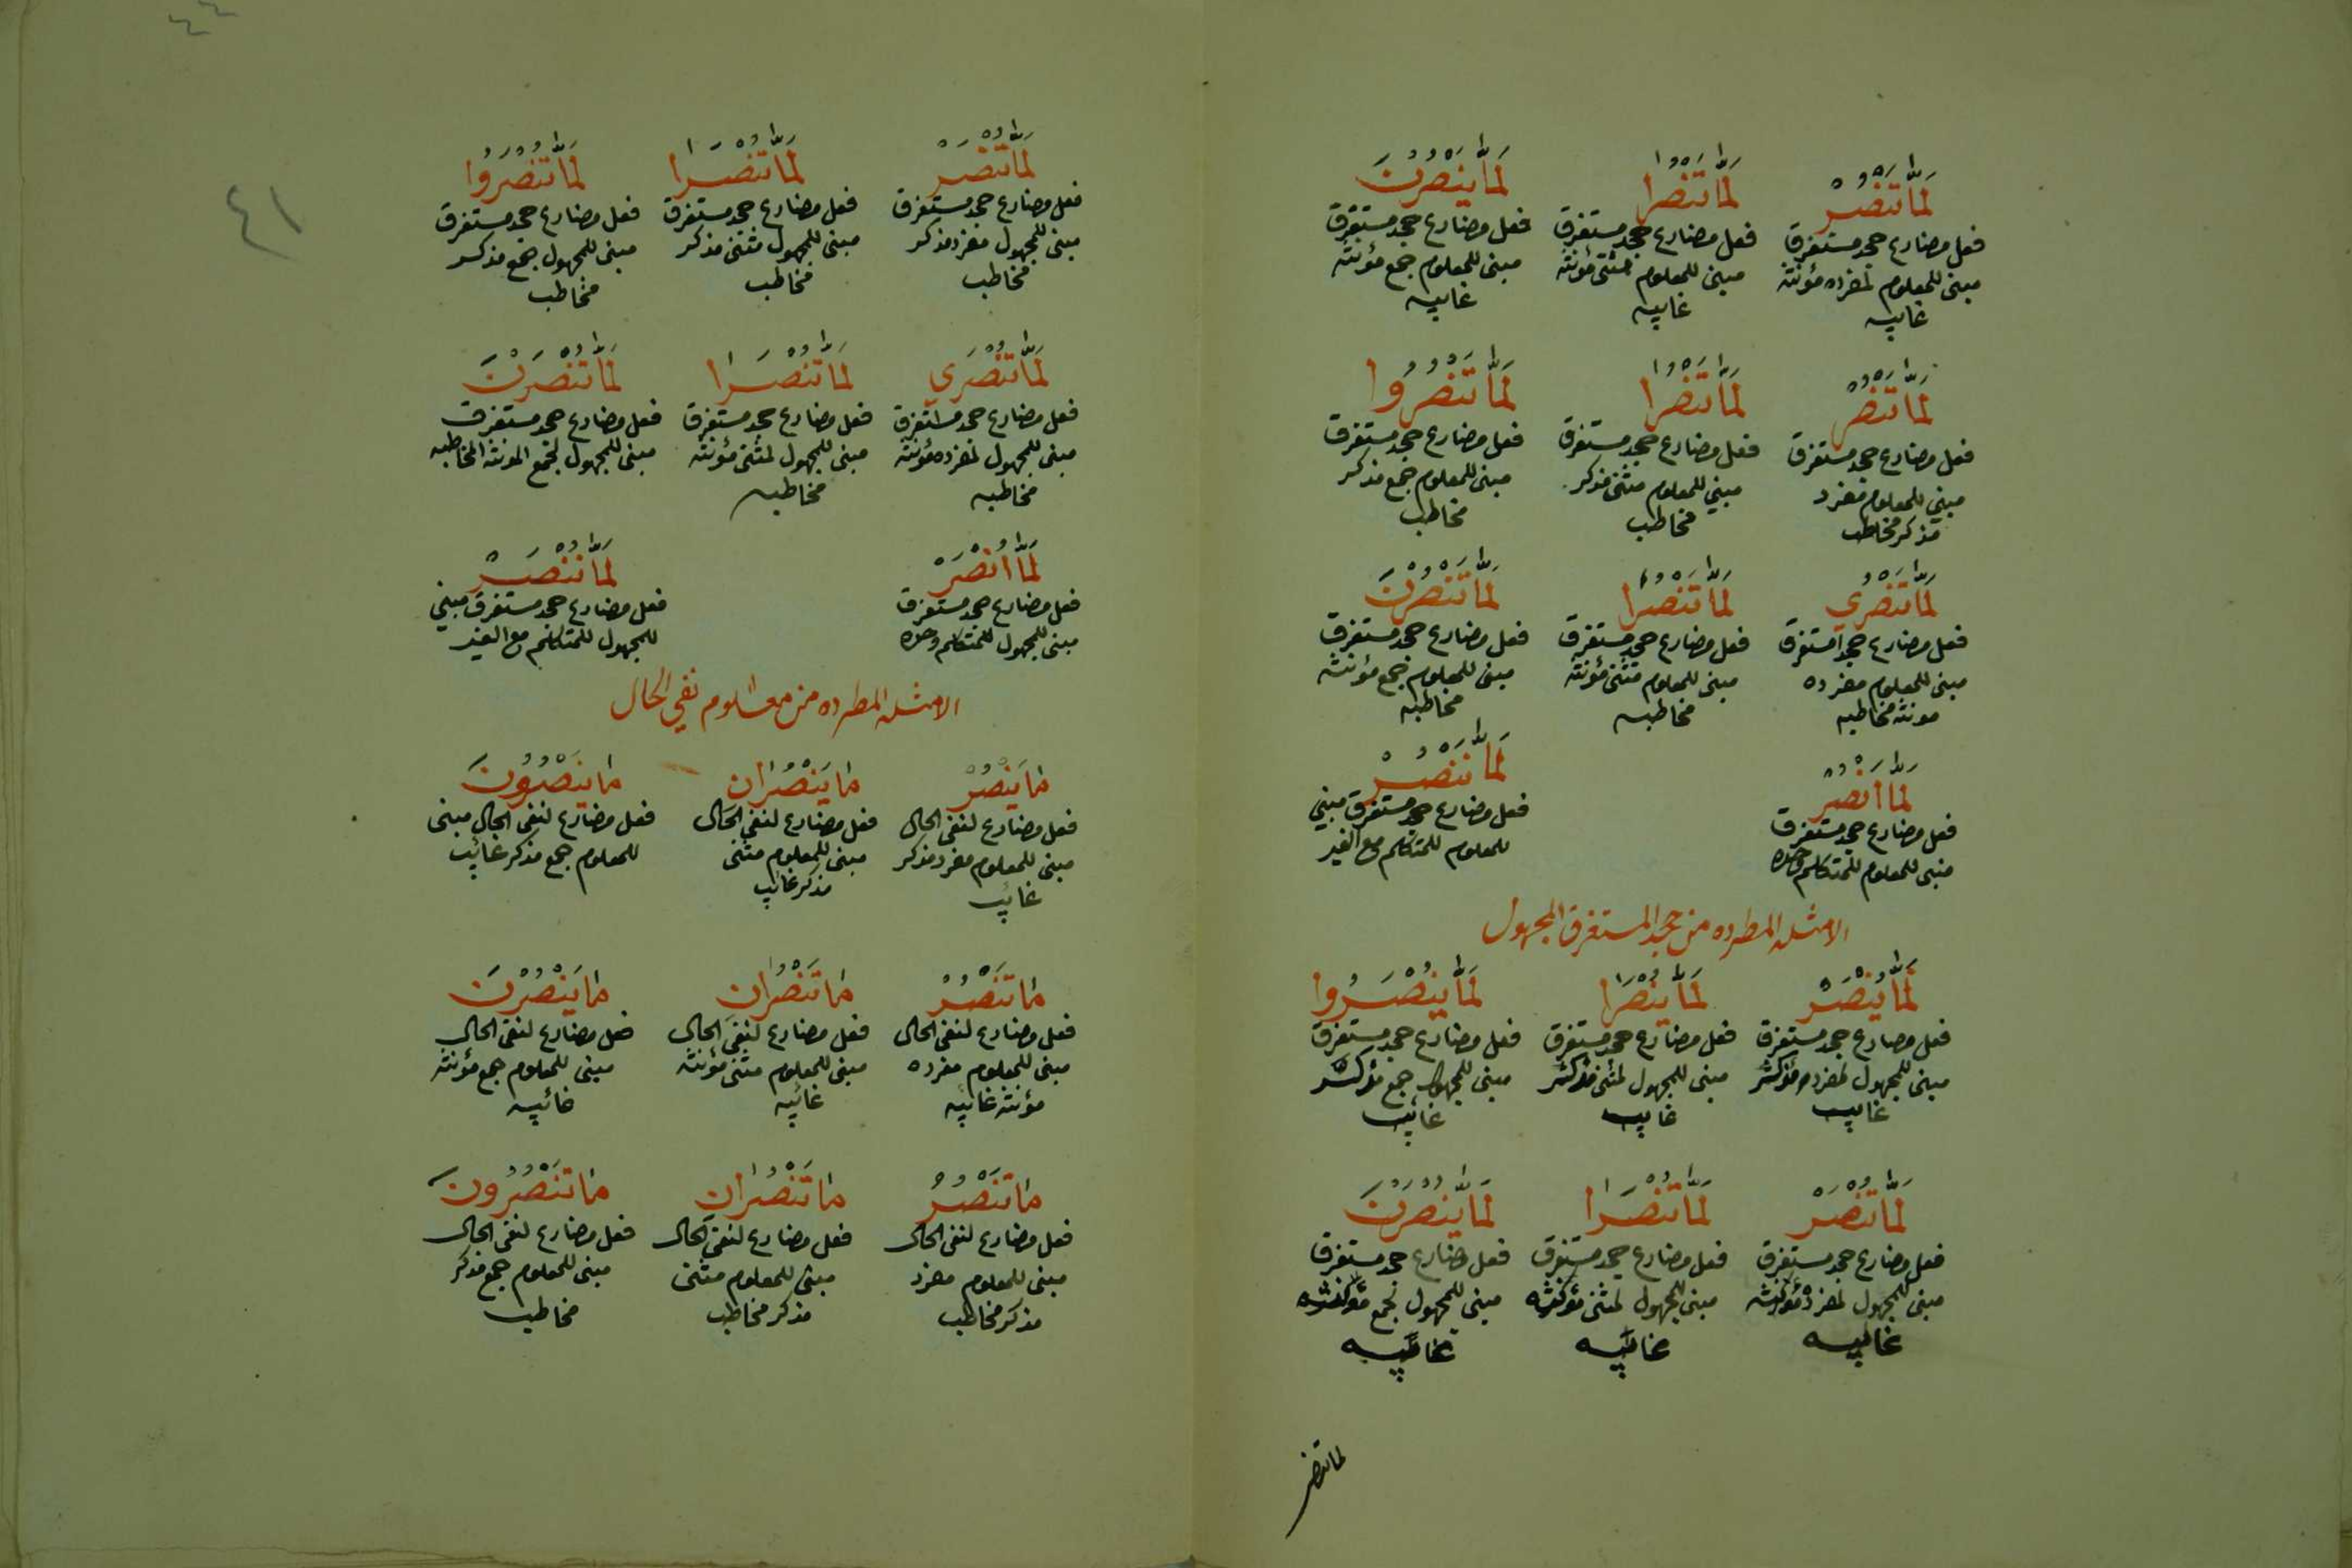 لَمَّا تَنْصُرْ
فعل مضارع جحد مستغرق
مبنى للمعلوم لمفرده مؤنثه
غايبه
لَمَّا تَنْصُرَا
فعل مضارع جحد مستغرق
مبنى للمعلوم مثنى مؤنثه
غايبه
لَمَّا يَنْصُرْنَ
فعل مضارع جحد مستغرق
مبنى للمعلوم جمع مؤنثه
غايبه
لَمَّا تَنْصُرْ
فعل مضارع جحد مستغرق
مبني للمعلوم مفرد
مذكر مخاطب
لَمَّا تَنْصُرَا
فعل مضارع جحد مستغرق
مبني للمعلوم مثنى مذكر
مخاطب
لَمَّا تَنْصُرُوا
فعل مضارع جحد مستغرق
مبنى للمعلوم جمع مذكر
مخاطب
لَمَّا تَنْصُرِي
فعل مضارع جحد مستغرق
مبنى للمعلوم مفرده
مونثه مخاطبه
لَمَّا تَنْصُرَا
فعل مضارع جحد مستغرق
مبنى للمعلوم مثنى مؤنثه
مخاطبه
لَمَّا تَنْصُرْنَ
فعل مضارع جحد مستغرق
مبنى للمعلوم جمع مؤنثه
مخاطبه
لَمَّا أَنْصُرْ
فعل مضارع جحد مستغرق
مبنى للمعلوم للمتكلم وحده
لَمَّا نَنْصُرْ
فعل مضارع جحد مستغرق مبني
للمعلوم للمتكلم مع الغير
الامثله المطرده من جحد المستغرق المجهول
لَمَّا يُنْصَرْ
فعل مضارع جحد مستغرق
مبنى للمجهول لمفرد مذكر
غايب
لَمَّا يُنْصَرَا
فعل مضارع جحد مستغرق
مبنى للمجهول لمثنى مذكر
غايب
لَمَّا يُنْصَرُوا
فعل مضارع جحد مستغرق
مبنى للمجهول جمع مذكر
غايب
لَمَّا تُنْصَرْ
فعل مضارع جحد مستغرق
مبنى للمجهول لمفرده مؤنثه
غايبه
لَمَّا تُنْصَرَا
فعل مضارع جحد مستغرق
مبنى للمجهول لمثنى مؤنثه
غايبه
لَمَّا يُنْصَرْنَ
فعل مضارع جحد مستغرق
مبنى للمجهول لجمع مؤنثه
غايبه
لما تنصر
٤١
لَمَّا تُنْصَرْ
فعل مضارع جحد مستغرق
مبنى للمجهول مفرد مذكر
مخاطب
لَمَّا تُنْصَرَا
فعل مضارع جحد مستغرق
مبنى للمجهول مثنى مذكر
مخاطب
لَمَّا تُنْصَرُوا
فعل مضارع جحد مستغرق
مبنى للمجهول جمع مذكر
مخاطب
لَمَّا تُنْصَرِي
فعل مضارع جحد مستغرق
مبنى للمجهول لمفرده مؤنثه
مخاطبه
لَمَّا تُنْصَرَا
فعل مضارع جحد مستغرق
مبنى للمجهول لمثنى مؤنثه
مخاطبه
لَمَّا تُنْصَرْنَ
فعل مضارع جحد مستغرق
مبنى للمجهول لجمع المونثه المخاطبه
لَمَّا أُنْصَرْ
فعل مضارع جحد مستغرق
مبنى للمجهول للمتكلم وحده
لَمَّا نُنْصَرْ
فعل مضارع جحد مستغرق مبني
للمجهول للمتكلم مع الغير
الامثله المطرده من معلوم نفي الحال
مَا يَنْصُرُ
فعل مضارع لنفى الحال
مبنى للمعلوم مفرد مذكر
غائب
مَا يَنْصُرَانِ
فعل مضارع لنفى الحال
مبنى للمعلوم مثنى
مذكر غائب
مَا يَنْصُرُونَ
فعل مضارع لنفى الحال مبنى
للمعلوم جمع مذكر غائب
مَا تَنْصُرُ
فعل مضارع لنفى الحال
مبنى للمعلوم مفرده
مؤنثه غائبه
مَا تَنْصُرَانِ
فعل مضارع لنفى الحال
مبنى للمعلوم مثنى مؤنثه
غائبه
مَا يَنْصُرْنَ
فعل مضارع لنفى الحال
مبنى للمعلوم جمع مؤنثه
غائبه
مَا تَنْصُرُ
فعل مضارع لنفى الحال
مبنى للمعلوم مفرد
مذكر مخاطب
مَا تَنْصُرَانِ
فعل مضارع لنفى الحال
مبنى للمعلوم مثنى
مذكر مخاطب
مَا تَنْصُرُونَ
فعل مضارع لنفى الحال
مبنى للمعلوم جمع مذكر
مخاطب